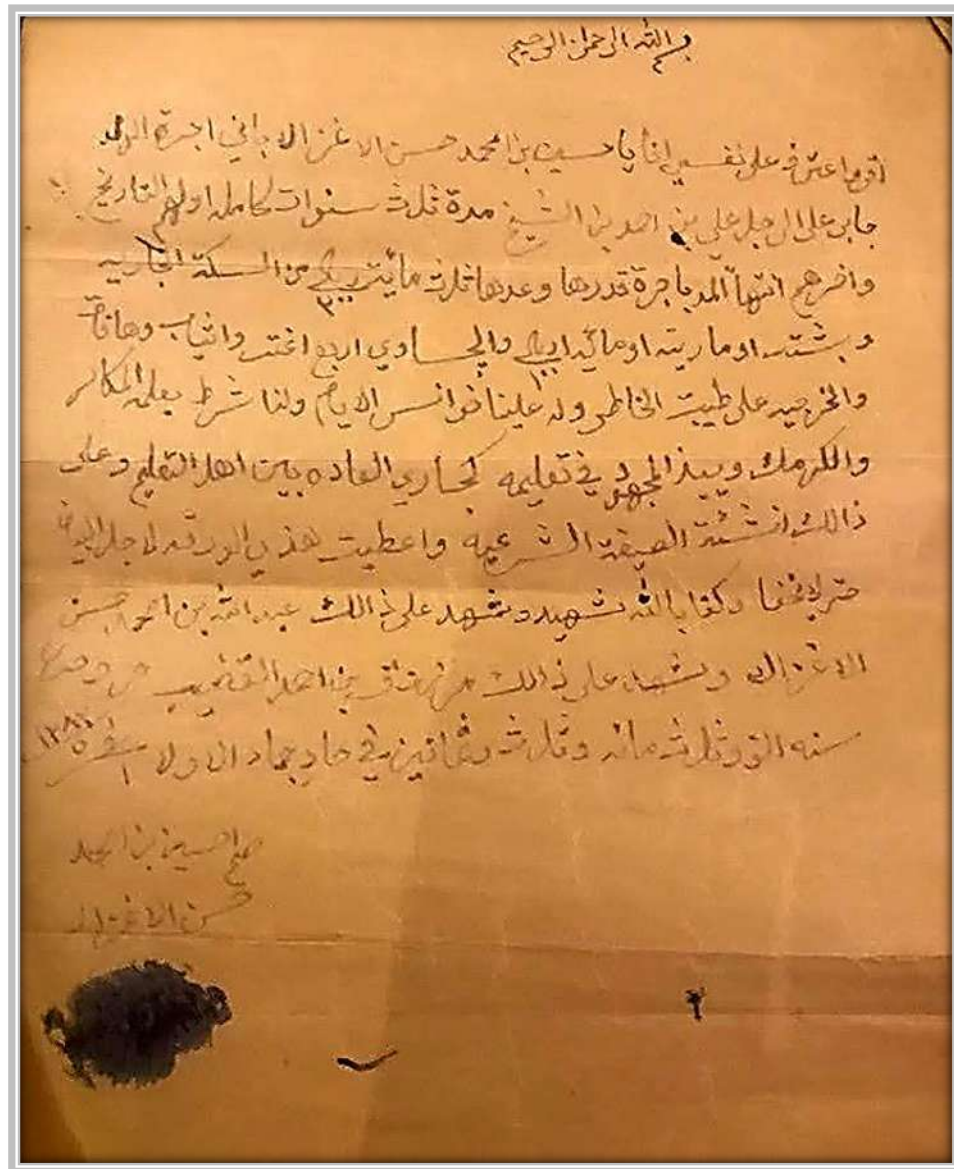 بسم الله الرحمن الرحيم
اقر واعترف على نفسي انا يا حسين بن محمد حسن الاغزال اباني اجرة الولد
جابر على الرجل علي بن احمد بن الشيخ مدة ثلث سنوات كامله اولهم التاريخ
واخرهم انتهآ المده باجرة قدرها وعدها ثلاث مائيت ريال ٣٠٠ من السكة الجاريه
وبشت او مارينه او مائة ريال ١٠٠ والحساوي اربع اغتر واثياب وهافات
والخرجيه على طيبت الخاطر وله علينا خوانس الايام ولنا شرط يعلمه المكاسر
والكرمك ويبذ المجهود في تعليمه كجاري العاده بين اهل التعليم وعلى
ذالك انشئة الصيغة الشرعيه واعطيت هذي الورقه لاجل البيان
حتى لا يخفا وكفا بالله شهيد وشهد على ذالك عبد الله بن احمد حسن
الاغزال وشهد على ذالك بن احمد
سنه الف وثلاث مائه وثلاث وثمانين في حاد جماد الاولا ١٣٨٣
صح حسين بن امحمد
حسن الاغزال